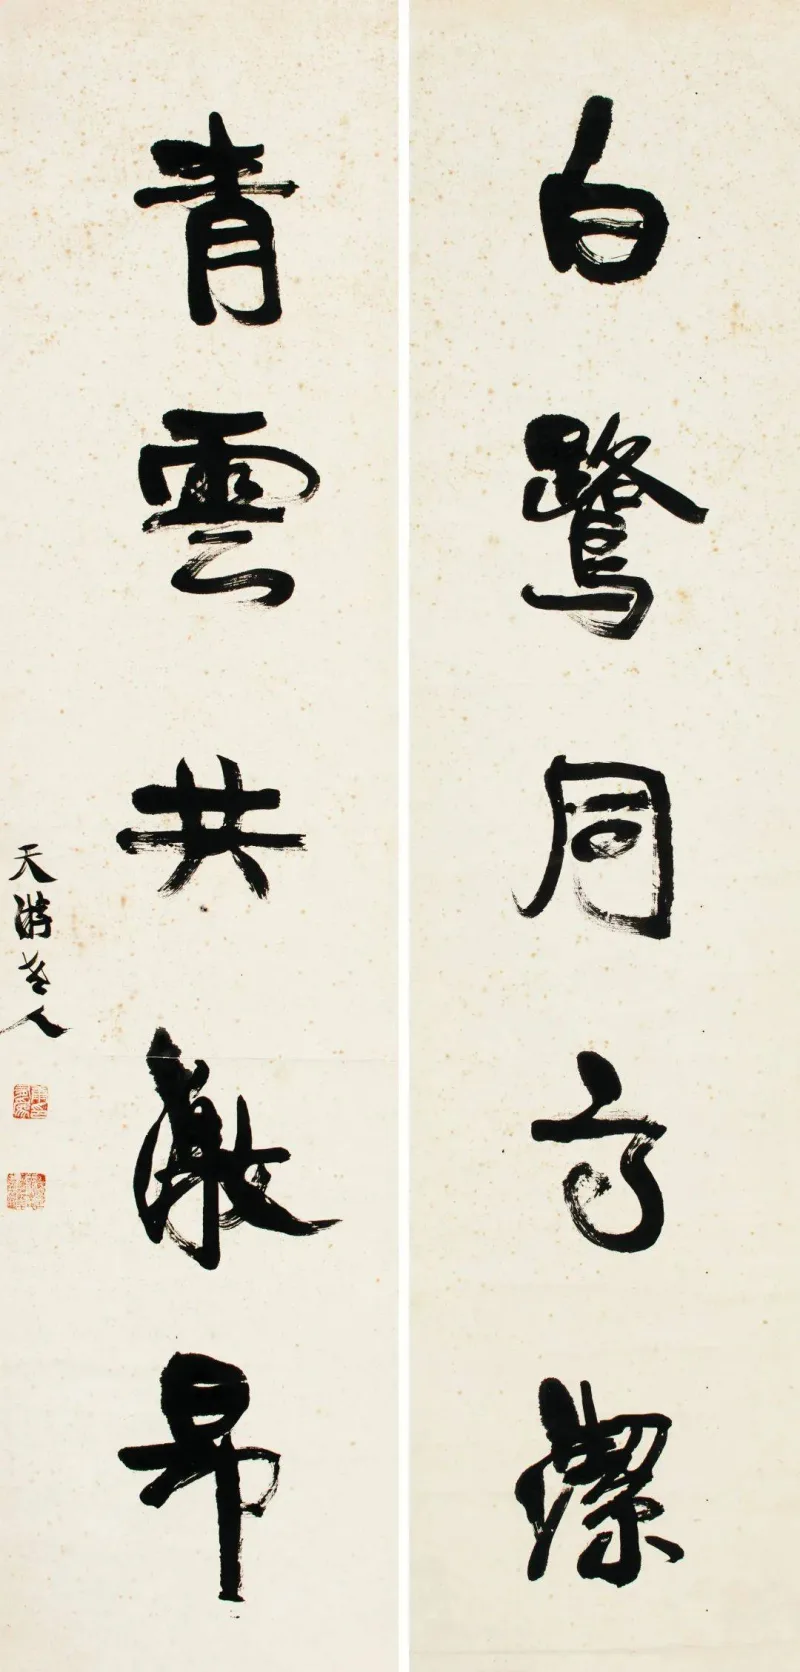 白鷺同高潔
青雲共激昂
天游老人